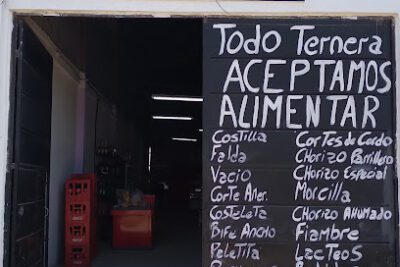 Todo Ternera
ACEPTAMOS
ALIMENTAR
Costilla
Falda
Vacio
Corte Amer.
Costeleta
Bife Ancho
Peletita
Cortes de Cerdo
CHorizo Parrillero
CHorizo Especial
Morcilla
CHorizo AHumado
Fiambre
Lacteos